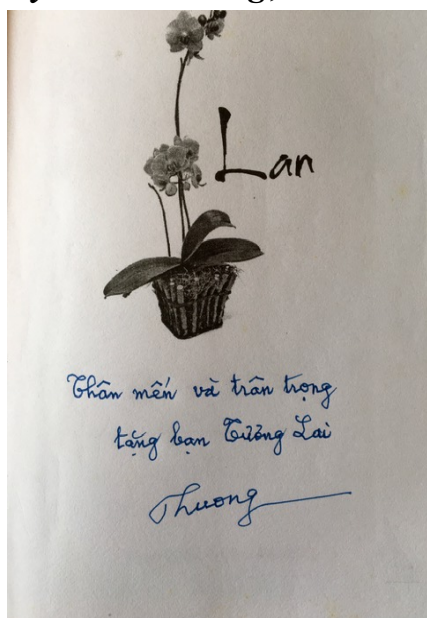 Lan
Thân mến và trân trọng
tặng bạn Tường Lai
Thương